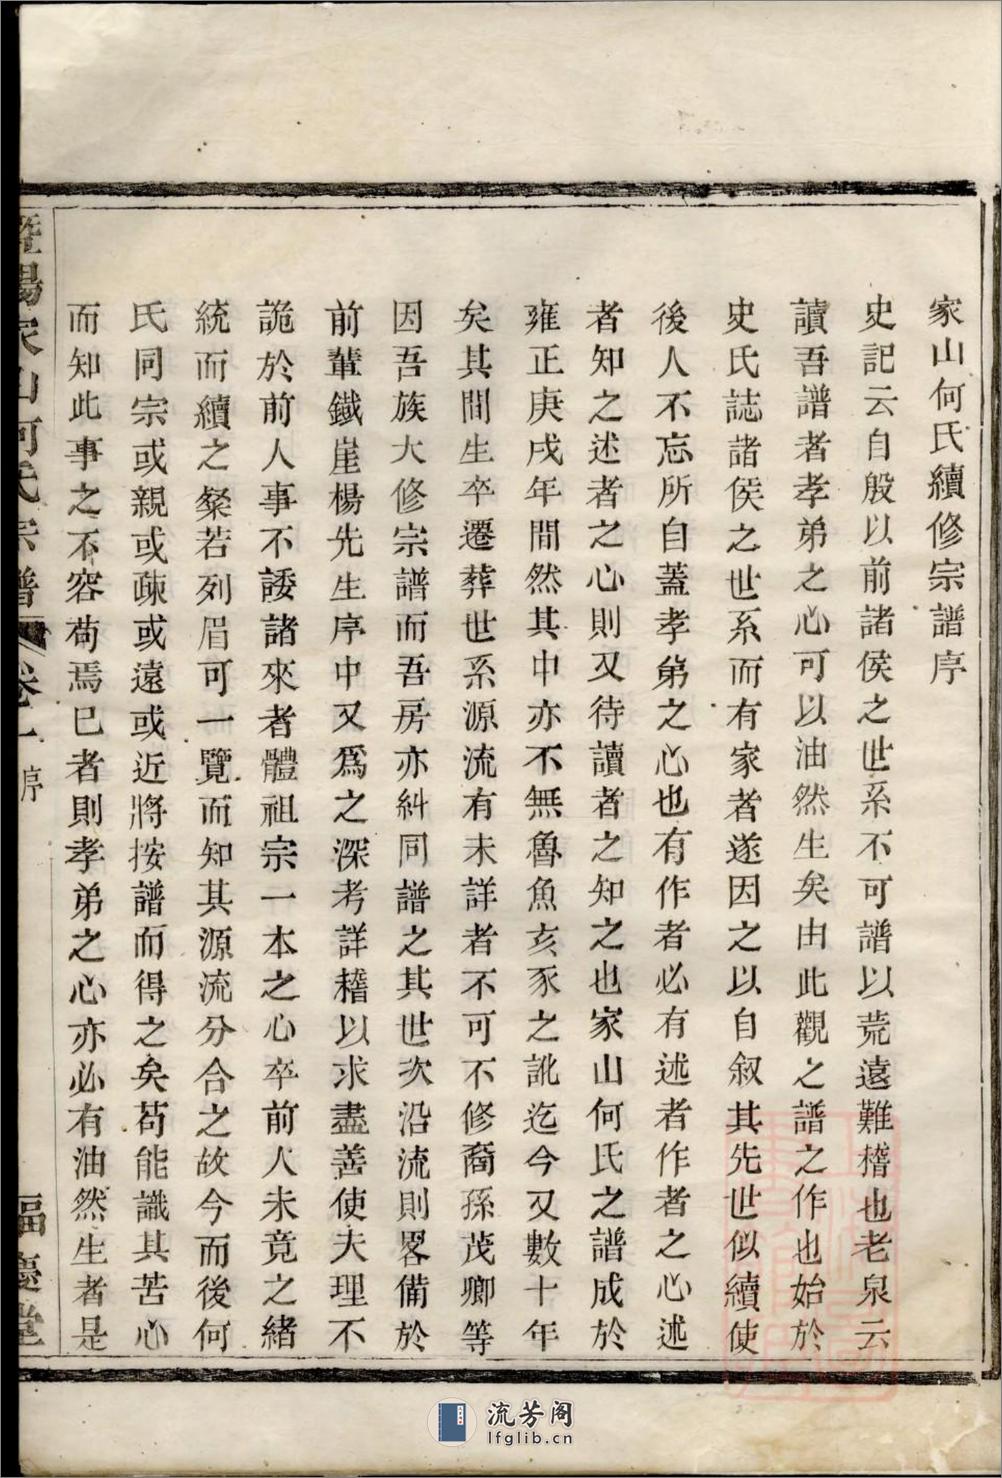 家山何氏續修宗譜序
史記云自殷以前諸侯之世系不可譜以荒遠難稽也老泉云
讀吾譜者孝弟之心可以油然生矣由此觀之譜之作也始於
史氏誌諸侯之世系而有家者遂因之以自叙其先世似續使
後人不忘所自蓋孝弟之心也有作者必有述者作者之心述
者知之述者之心則又待讀者之知之也家山何氏之譜成於
雍正庚戌年間然其中亦不無魯魚亥豕之訛迄今又數十年
矣其間生卒遷葬世系源流有未詳者不可不修裔孫茂卿等
因吾族大修宗譜而吾房亦糾同譜之其世次沿流則畧備於
前輩鐵崖楊先生序中又爲之深考詳稽以求盡善使夫理不
詭於前人事不諉諸來者體祖宗一本之心卒前人未竟之緒
統而續之粲若列眉可一覽而知其源流分合之故今而後何
氏同宗或親或疎或遠或近將按譜而得之矣苟能識其苦心
而知此事之不容苟焉已者則孝弟之心亦必有油然生者是
暨陽家山何氏宗譜 卷一 序 福慶堂
流芳阁
lfglib.cn